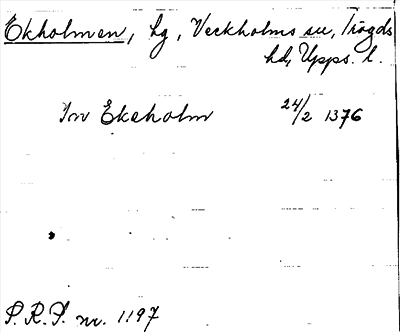 Ekholmen, hg, Veckholms sn, Trögds
hd, Upps. l.
In Ekeholm 24/2 1376
P.R.P. nr. 1197